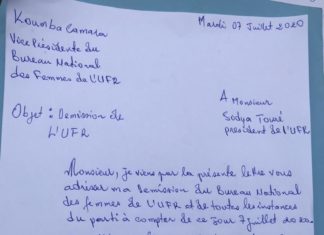 Koumba Camara
Mardi 07 Juillet 2020
Vice Présidente du
Bureau National
des Femmes de L'UFR
A Monsieur
Sidya Touré
president de l'UFR
Objet : Demission de
L'UFR
Monsieur, je viens par la présente lettre vous
adresser ma Demission du Bureau National
des femmes de l'UFR et de toutes les instances
du parti à compter de ce jour 7 juillet 2020.